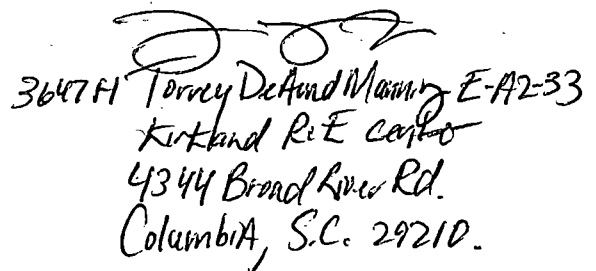 364781 Torrey DeAund Manning E-A2-33
Kirkland R&E Center
4344 Broad River Rd.
Columbia, S.C. 29210.